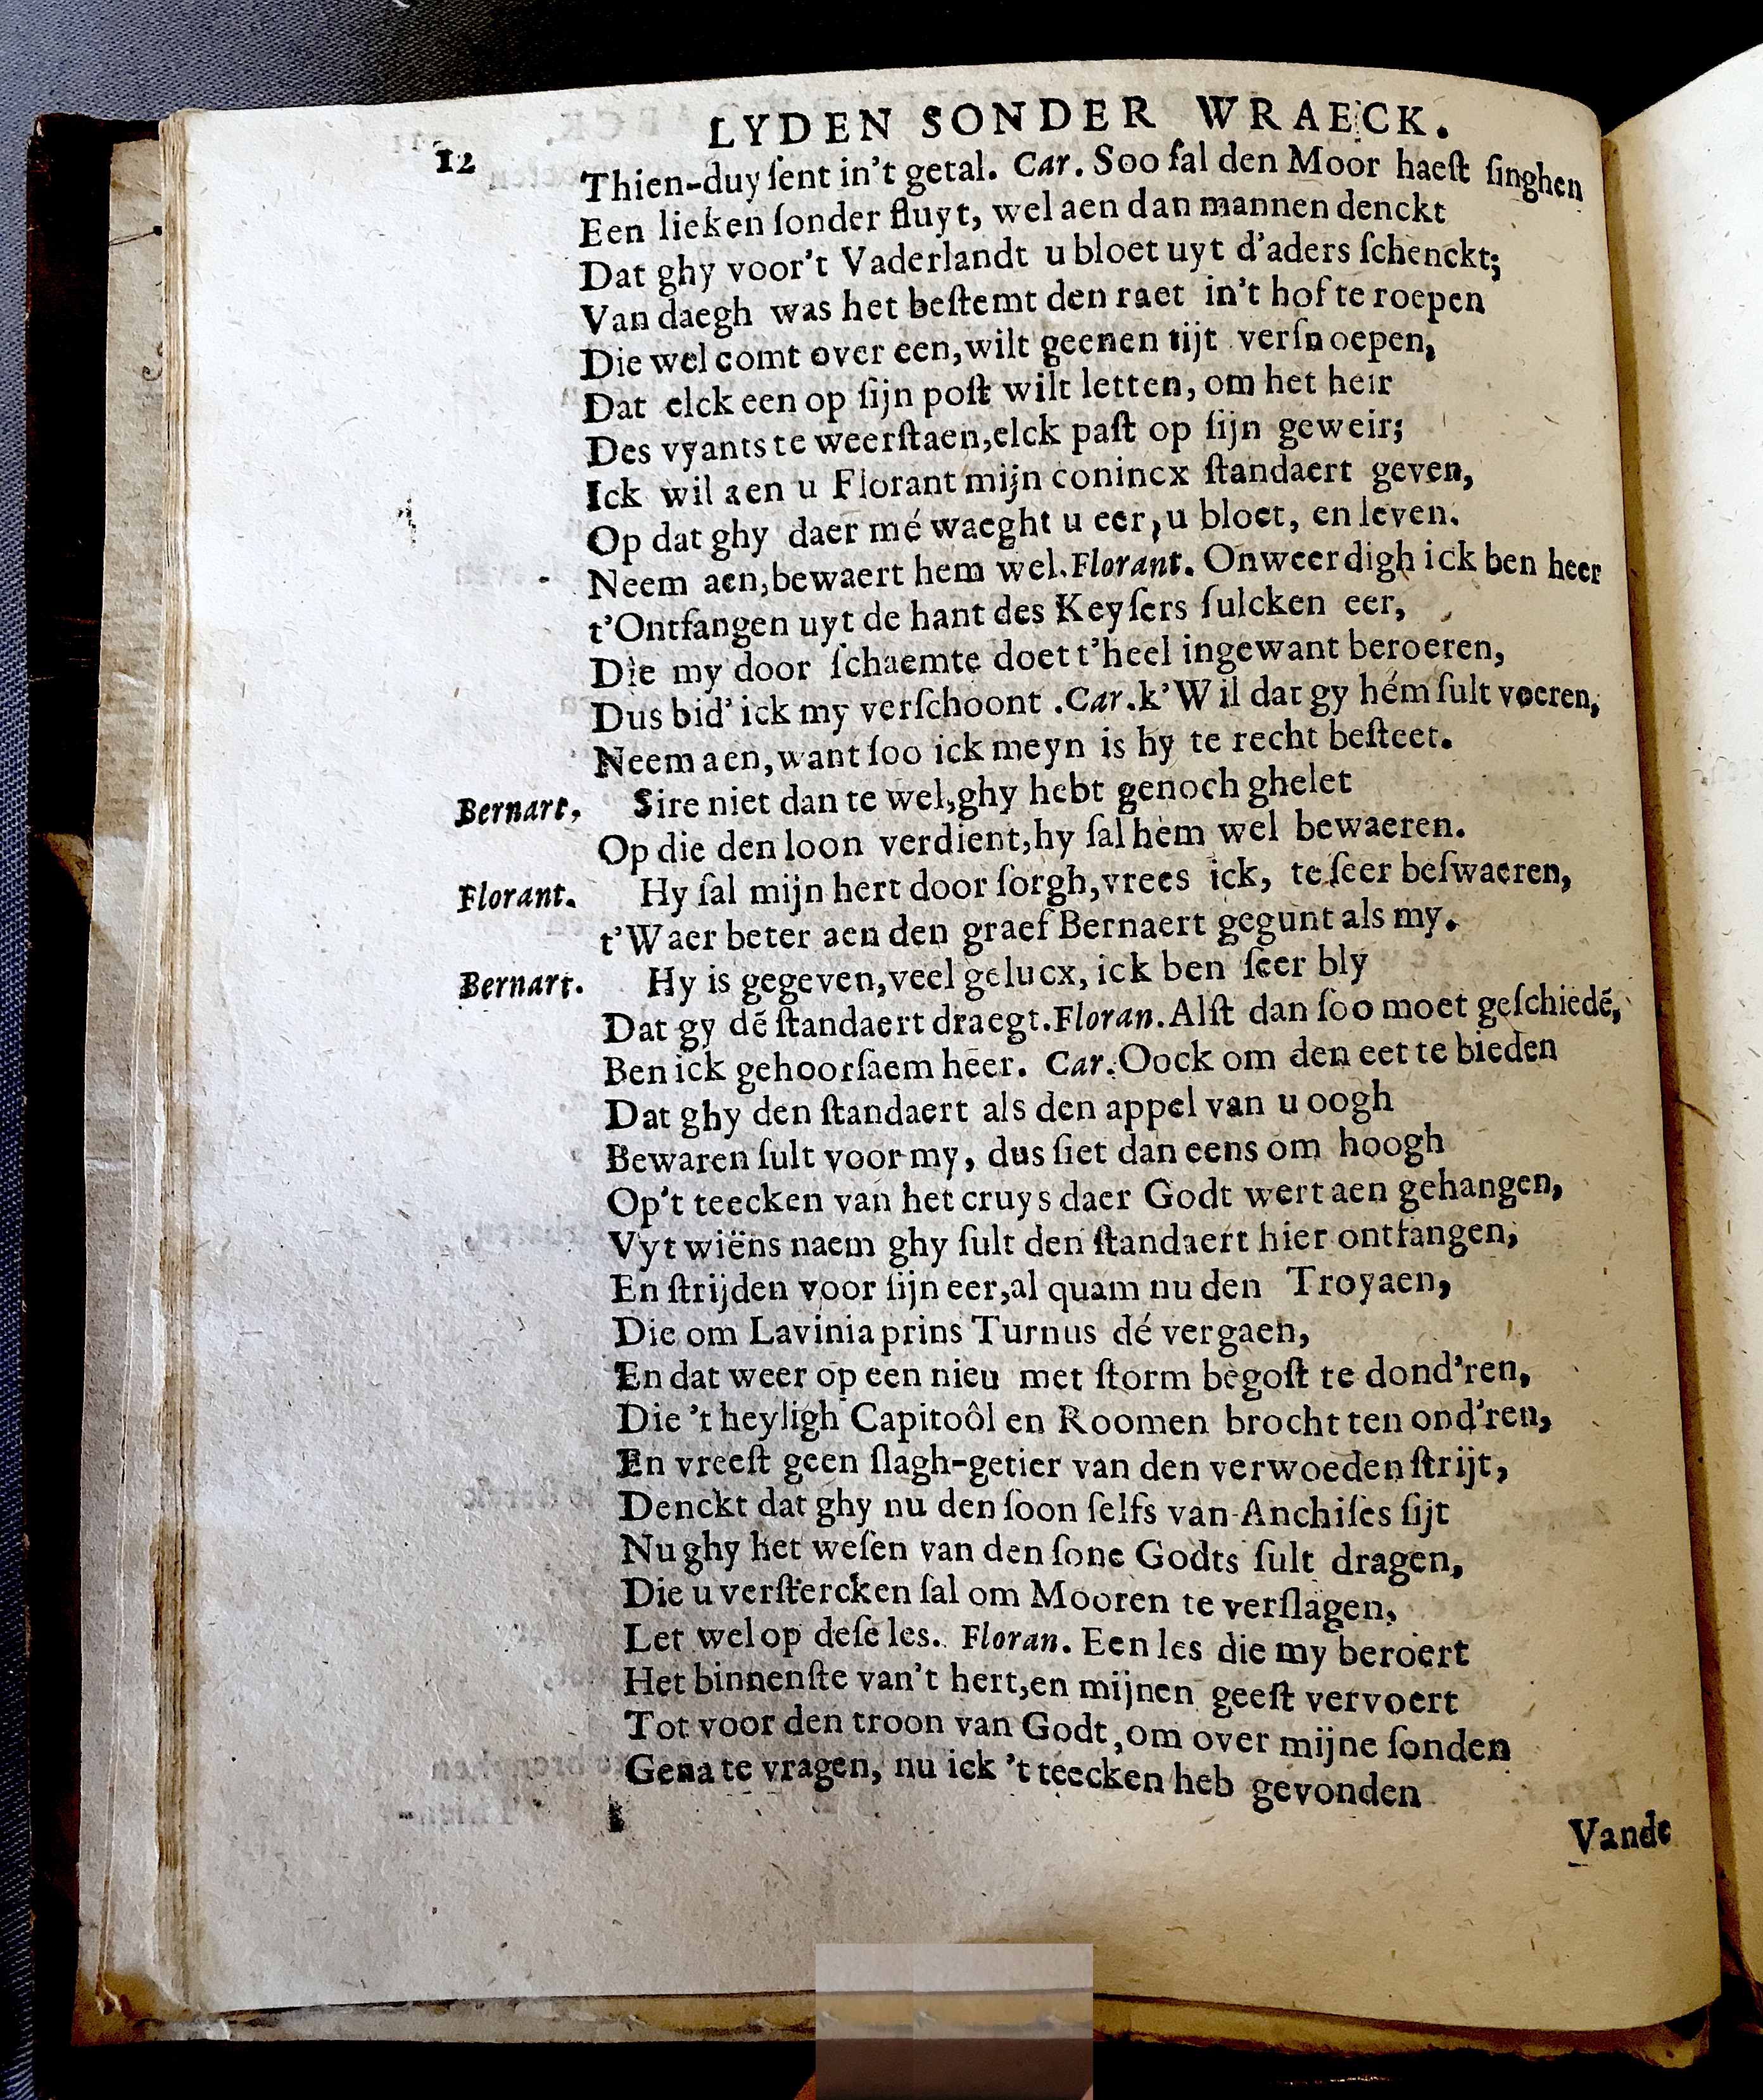 LYDEN SONDER WRAECK.
12
Thien-duyſent in't getal. Car. Soo ſal den Moor haeſt ſinghen
Een lieken ſonder fluyt, wel aen dan mannen denckt
Dat ghy voor't Vaderlandt u bloet uyt d'aders ſchenckt;
Van daegh was het beſtemt den raet in't hof te roepen
Die wel comt over een, wilt geenen tijt verſnoepen,
Dat elck een op ſijn poſt wilt letten, om het heir
Des vyants te weerſtaen, elck paſt op ſijn geweir;
Ick wil aen u Florant mijn conincx ſtandaert geven,
Op dat ghy daer mé waeght u eer, u bloet, en leven.
Neem aen, bewaert hem wel. Florant. Onweerdigh ick ben heer
t'Ontfangen uyt de hant des Keyſers ſulcken eer,
Die my door ſchaemte doet t'heel ingewant beroeren,
Dus bid' ick my verſchoont . Car. k'Wil dat gy hém ſult voeren,
Neem aen, want ſoo ick meyn is hy te recht beſteet.
Bernart, Sire niet dan te wel, ghy hebt genoch ghelet
Op die den loon verdient, hy ſal hem wel bewaeren.
Florant. Hy ſal mijn hert door ſorgh, vrees ick, te ſeer beſwaeren,
t'Waer beter aen den graef Bernaert gegunt als my.
Bernart. Hy is gegeven, veel gelucx, ick ben ſeer bly
Dat gy dē ſtandaert draegt. Floran. Alſt dan ſoo moet geſchiedē,
Ben ick gehoorſaem heer. Car. Oock om den eet te bieden
Dat ghy den ſtandaert als den appel van u oogh
Bewaren ſult voor my, dus ſiet dan eens om hoogh
Op't teecken van het cruys daer Godt wert aen gehangen,
Vyt wiëns naem ghy ſult den ſtandaert hier ontfangen,
En ſtrijden voor ſijn eer, al quam nu den Troyaen,
Die om Lavinia prins Turnus dé vergaen,
En dat weer op een nieu met ſtorm begoſt te dond'ren,
Die 't heyligh Capitoôl en Roomen brocht ten ond'ren,
En vreeſt geen ſlagh-getier van den verwoeden ſtrijt,
Denckt dat ghy nu den ſoon ſelfs van Anchiſes ſijt
Nu ghy het weſen van den ſone Godts ſult dragen,
Die u verſtercken ſal om Mooren te verſlagen,
Let wel op deſe les. Floran. Een les die my beroert
Het binnenſte van't hert, en mijnen geeſt vervoert
Tot voor den troon van Godt, om over mijne ſonden
Gena te vragen, nu ick 't teecken heb gevonden
Vande